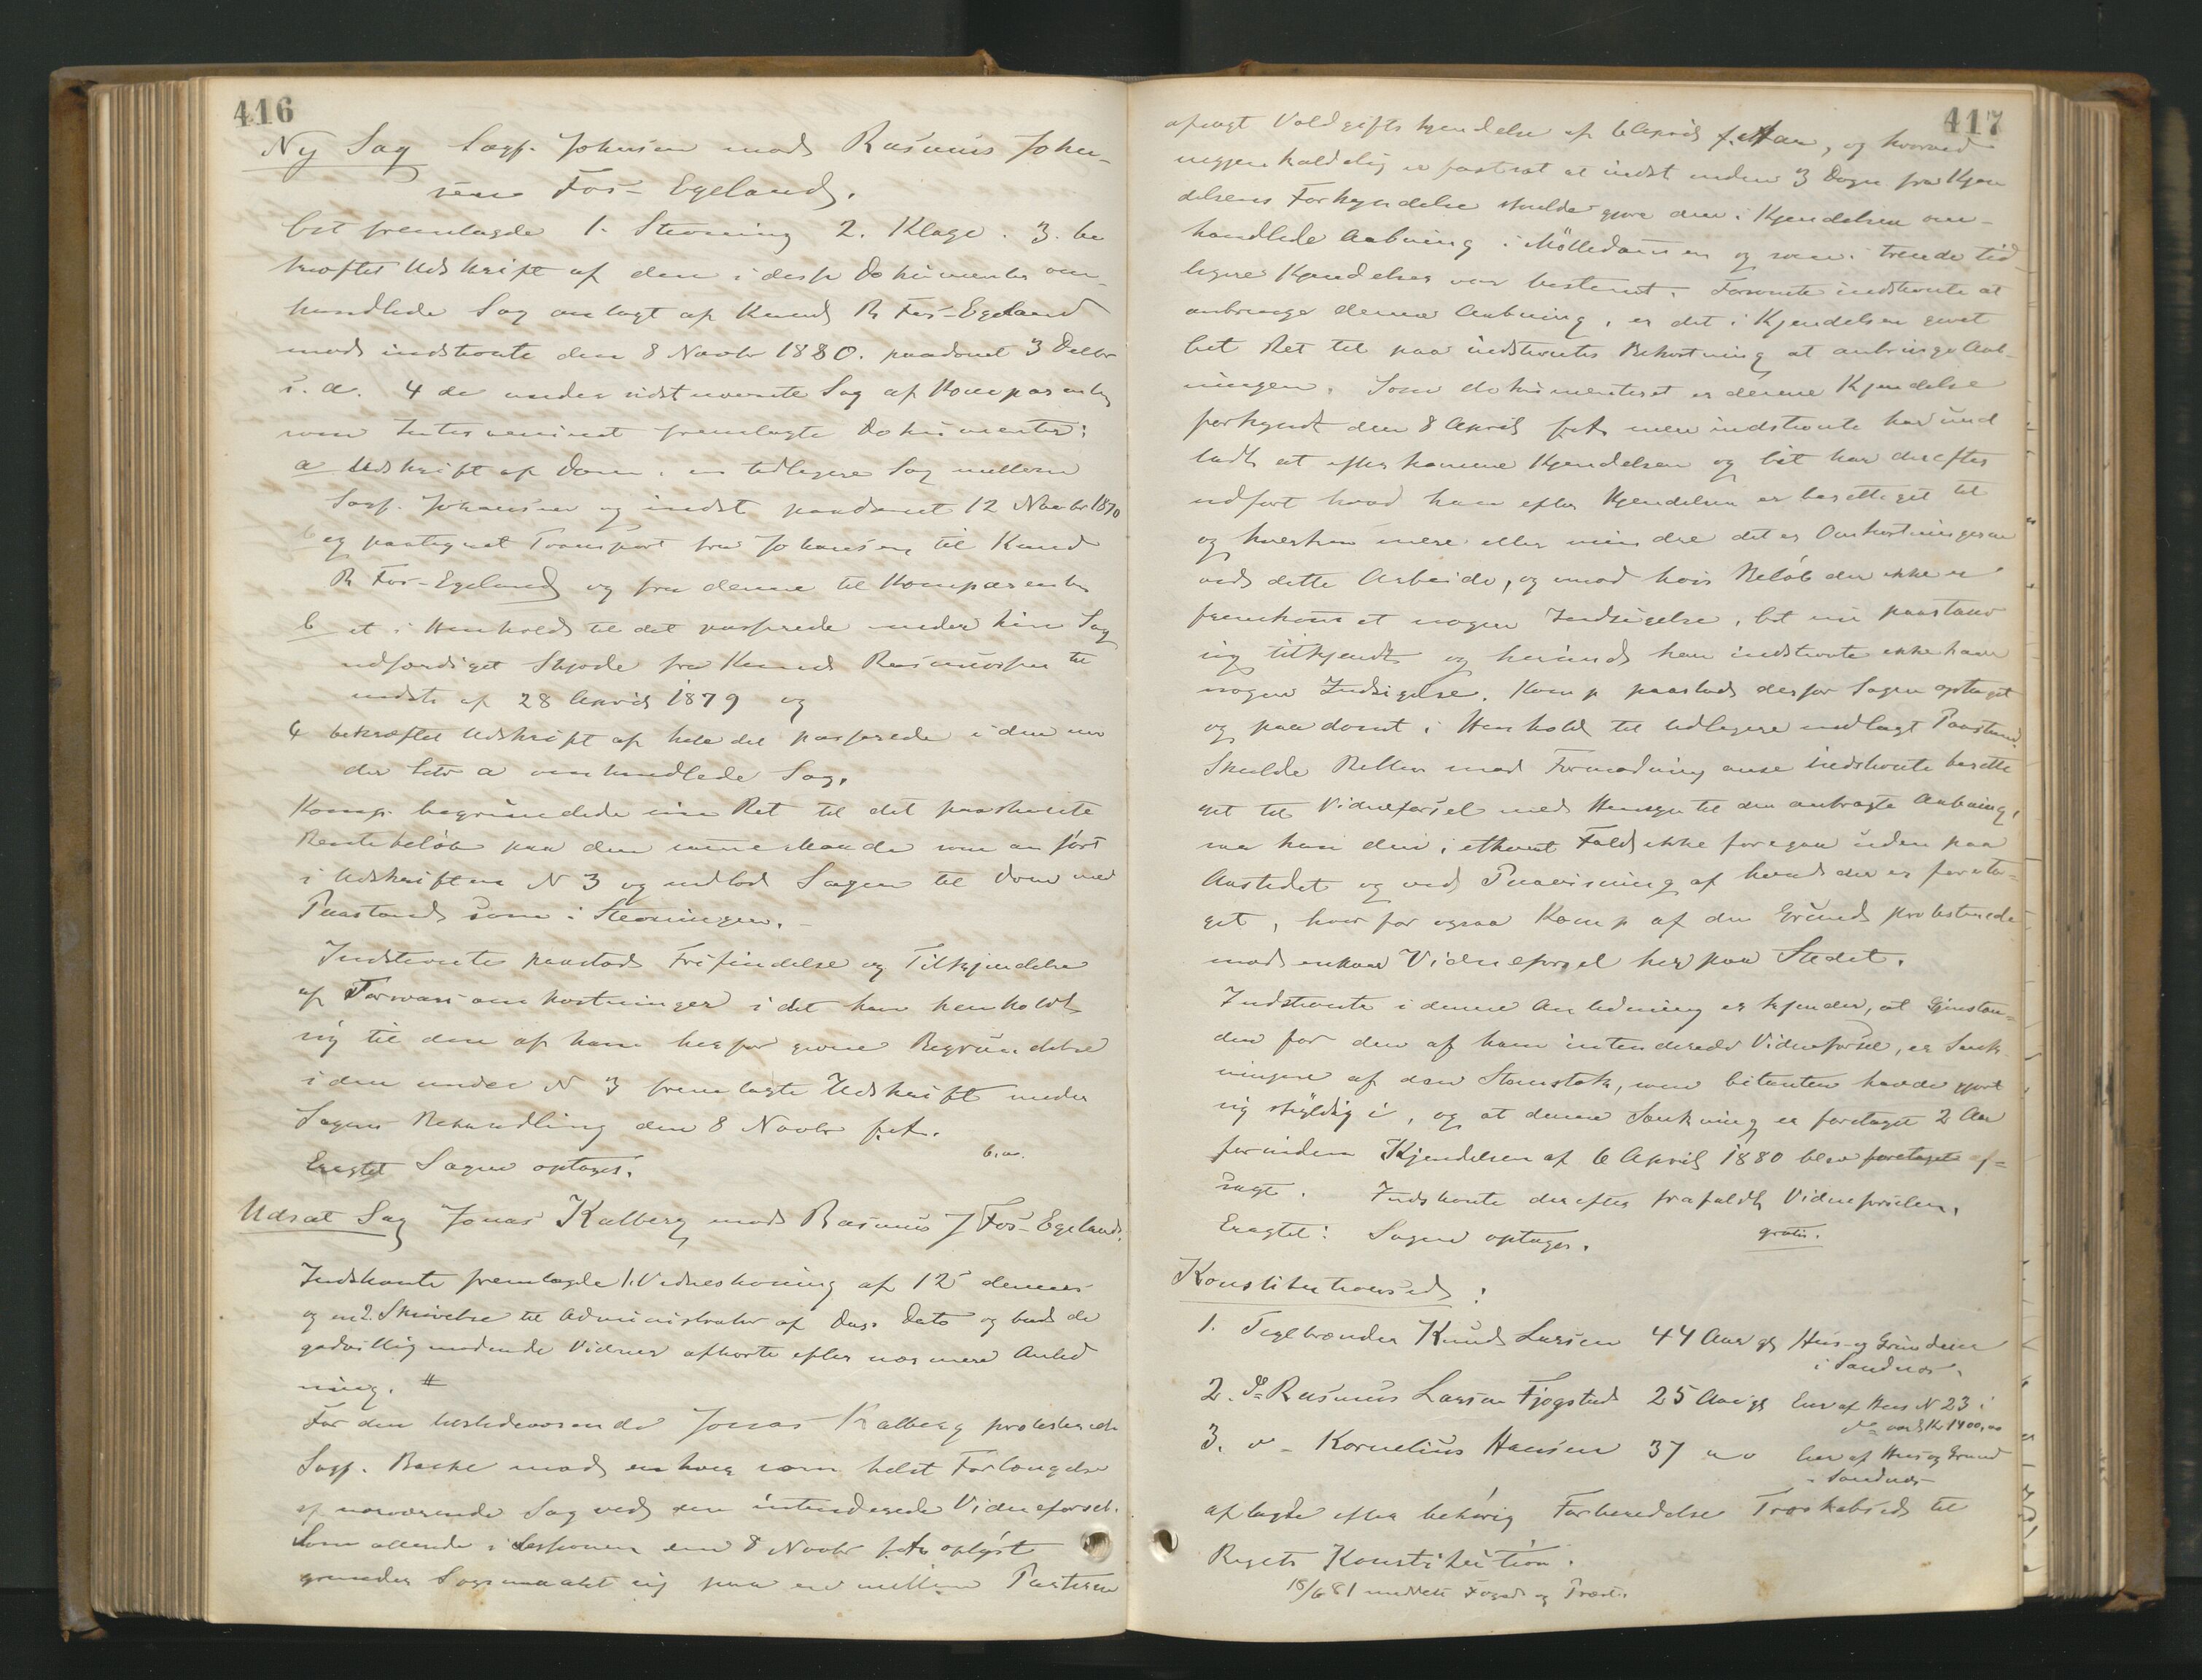 416
Ny Sag Sagf. Johnsen mod Rasmus John-
sen Fos-Egeland.
Cit fremlagde 1. Stevning 2. Klage. 3. be
kræftet Udskrift af den i disse Dokumenter om-
handlede Sag anlagt af Knud R Fos-Egeland
mod indstevnte den 8 Novbr 1880. paadømt 3 Decbr
s. A. 4 de under sidstnævnte Sag af Komparenten
som Intervenient fremlagte Dokumenter:
a Udskrift af Dom i en tidligere Sag mellem
Sagf. Johnsen og indst paadømt 12 Novbr 1870
og paategnet Transport fra Johansen til Knud
R Fos-Egeland og fra denne til Komparenten
b et i Henhold til det passerede under hin Sag
udfærdiget Skjøde fra Knud Rasmussen til
indst af 28 April 1879 og
4 bekræftet Udskrift af hele det passerede i den un
der Litr a omhandlede Sag.
Komp. begrundede sin Ret til det paastevnte
Rentebeløb paa den samme Maade som anført
i Udskriften N 3 og indlod Sagen til Dom med
Paastand som i Stevningen.
Indstevnte paastod Frifindelse og Tilkjendelse
af Forsvarsomkostninger idet han henholdt
sig til den af ham herfor givne Begrundelse
i den under N 3 fremlagte Udskrift under
Sagens Behandling den 8 Novbr f.A.
Eragtet Sagen optages.
Udsat Sag Jonas Kalberg mod Rasmus J Fos-Egeland.
Indstevnte fremlagde 1. Vidnestevning af 12 dennes
og en 2. Skrivelse til Administrator af Dags Dato og bad de
godvillig mødende Vidner afhørte efter nærmere Anled
ning. #
For den tilstedeværende Jonas Kalberg protesterede
Sagf. Bache mod enhver som helst Forlængelse
af nærværende Sag ved den intenderede Vidneførsel.
Som allerede i Sessionen den 8 Novbr f.A. oplyst
grunder Sagsmaalet sig paa en mellem Parterne
417
afsagt Voldgiftskjendelse af 6 April f. Aar, og hvorved
uigjenkaldelig er fastsat at indst inden 3 Dage fra Kjen
delsens Forkyndelse skulde gjøre den i Kjendelsen om-
handlede Aabning i Mølledammen og som i trende tid-
ligere Kjendelser var bestemt. Forsømte indstevnte at
anbringe denne Aabning, er det i Kjendelsen givet
Cit Ret til paa indstevntes Bekostning at anbringe Aab-
ningen. Som dokumenteret er denne Kjendelse
forkyndt den 8 April f.A. men indstevnte har und
ladt at efterkomme Kjendelsen og Cit har derefter
udført hvad han efter Kjendelsen er berettiget til
og hverken mere eller mindre det er Omkostningerne
ved dette Arbeide, og mod hvis Beløb der ikke er
fremkommet nogen Indsigelse, Cit nu paastaar
sig tilkjendt og herimod kan indstevnte ikke have
nogen Indsigelse. Komp paastod derfor Sagen optaget
og paadømt i Henhold til tidligere nedlagt Paastand.
Skulde Retten mod Formodning anse indstevnte beretti
get til Vidneførsel med Hensyn til den anbragte Aabning,
saa kan den i ethvert Fald ikke foregaa uden paa
Aastedet og ved Paavisning af hvad der er foreta-
get, hvorfor ogsaa Komp af den Grund protesterede
mod enhver Vidneførsel her paa Stedet.
Indstevnte i denne Anledning erkjender, at Gjenstan-
den for den af ham intenderede Vidneførsel, er Sænk-
ningen af den Stemstok, som Citanten havde gjort
sig skyldig i, og at denne Sænkning er foretaget 2 Aar
forinden Kjendelsen af 6 April 1880 blev foretaget af-
sagt. Indstevnte derefter frafaldt Vidneførselen.
Eragtet: Sagen optages. gratis.
Konstitutionsed:
1. Teglbrænder Knud Larsen 44 Aar gl Hus- og Grundeier
i Sandnæs.
2. Do Rasmus Larsen Fjogstad 25 Aar gl Eier af Hus N 23 i
do værd Kr 1400,00
3. " - Kornelius Hansen 37 " " Eier af Hus og Grund
i Sandnæs
aflagde efter behørig Forberedelse Troskabsed til
Rigets Konstitution.
18/6 81 meddelt Foged og Præst.